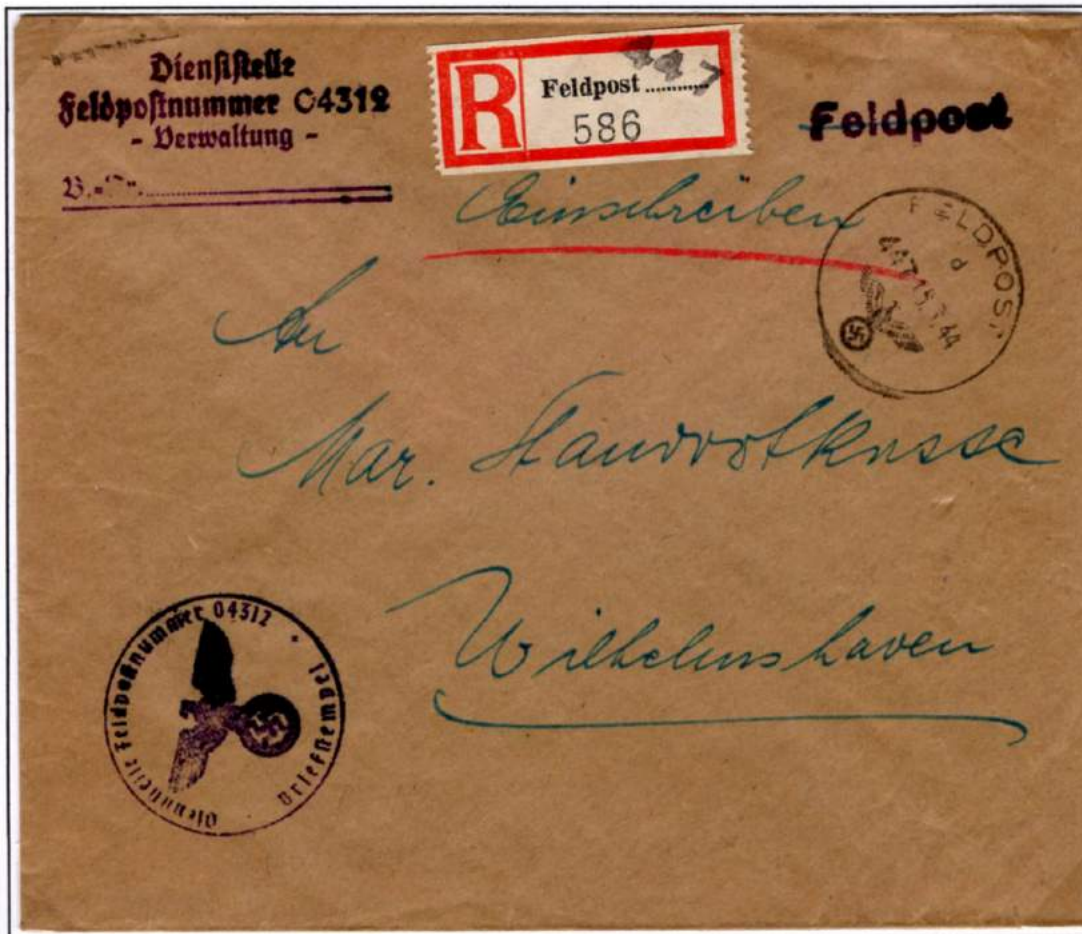 Dienststelle
Feldpostnummer 04312
- Verwaltung -
R
Feldpost .......... 447
586
Feldpost
Einschreiben
FELDPOST
d
447
44
An
Mar. Standortkasse
Wilhelmshaven
Dienststelle Feldpostnummer 04312 * Briefstempel